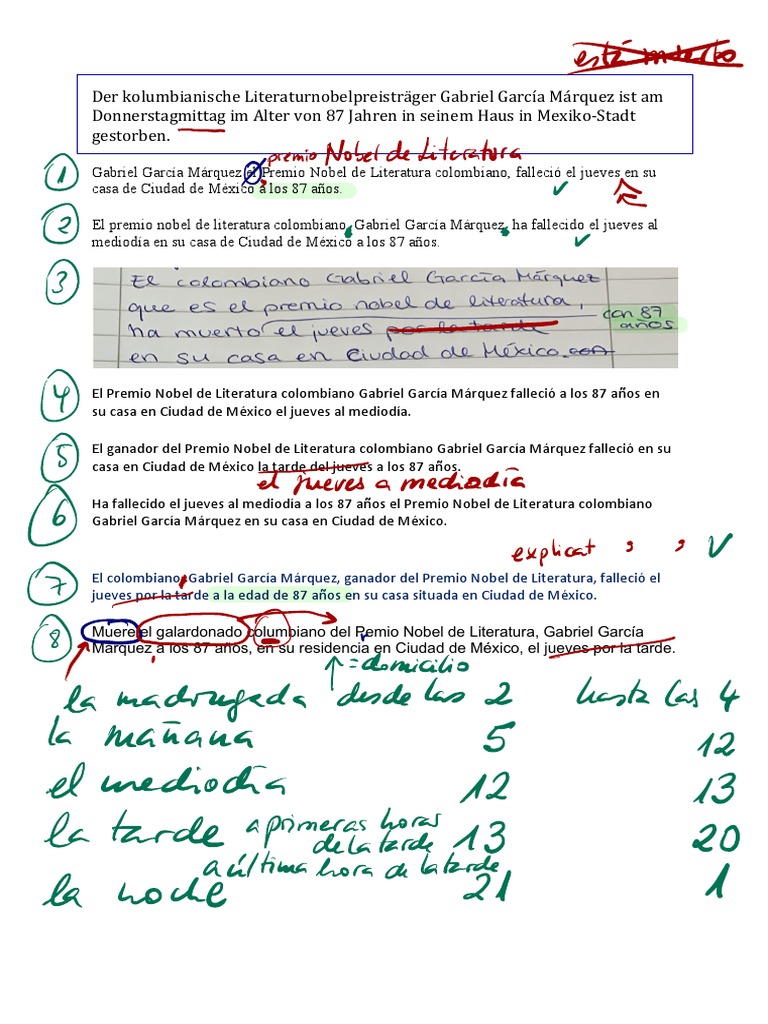 está muerto
Der kolumbianische Literaturnobelpreisträger Gabriel García Márquez ist am
Donnerstagmittag im Alter von 87 Jahren in seinem Haus in Mexiko-Stadt
gestorben.
premio Nobel de Literatura
1 Gabriel García Márquez el Premio Nobel de Literatura colombiano, falleció el jueves en su
casa de Ciudad de México a los 87 años.
2 El premio nobel de literatura colombiano, Gabriel García Márquez, ha fallecido el jueves al
mediodía en su casa de Ciudad de México a los 87 años.
3 El colombiano Gabriel García Márquez
que es el premio nobel de literatura,
ha muerto el jueves por la tarde con 87 años
en su casa en Ciudad de México. con
4 El Premio Nobel de Literatura colombiano Gabriel García Márquez falleció a los 87 años en
su casa en Ciudad de México el jueves al mediodía.
5 El ganador del Premio Nobel de Literatura colombiano Gabriel García Márquez falleció en su
casa en Ciudad de México la tarde del jueves a los 87 años.
el jueves a mediodía
6 Ha fallecido el jueves al mediodía a los 87 años el Premio Nobel de Literatura colombiano
Gabriel García Márquez en su casa en Ciudad de México.
explicat , ,
7 El colombiano, Gabriel García Márquez, ganador del Premio Nobel de Literatura, falleció el
jueves por la tarde a la edad de 87 años en su casa situada en Ciudad de México.
8 Muere el galardonado columbiano del Pemio Nobel de Literatura, Gabriel García
Márquez a los 87 años, en su residencia en Ciudad de México, el jueves por la tarde.
= domicilio
la madrugada desde las 2 hasta las 4
la mañana 5 12
el mediodía 12 13
la tarde a primeras horas de la tarde 13 20
a última hora de la tarde
la noche 21 1